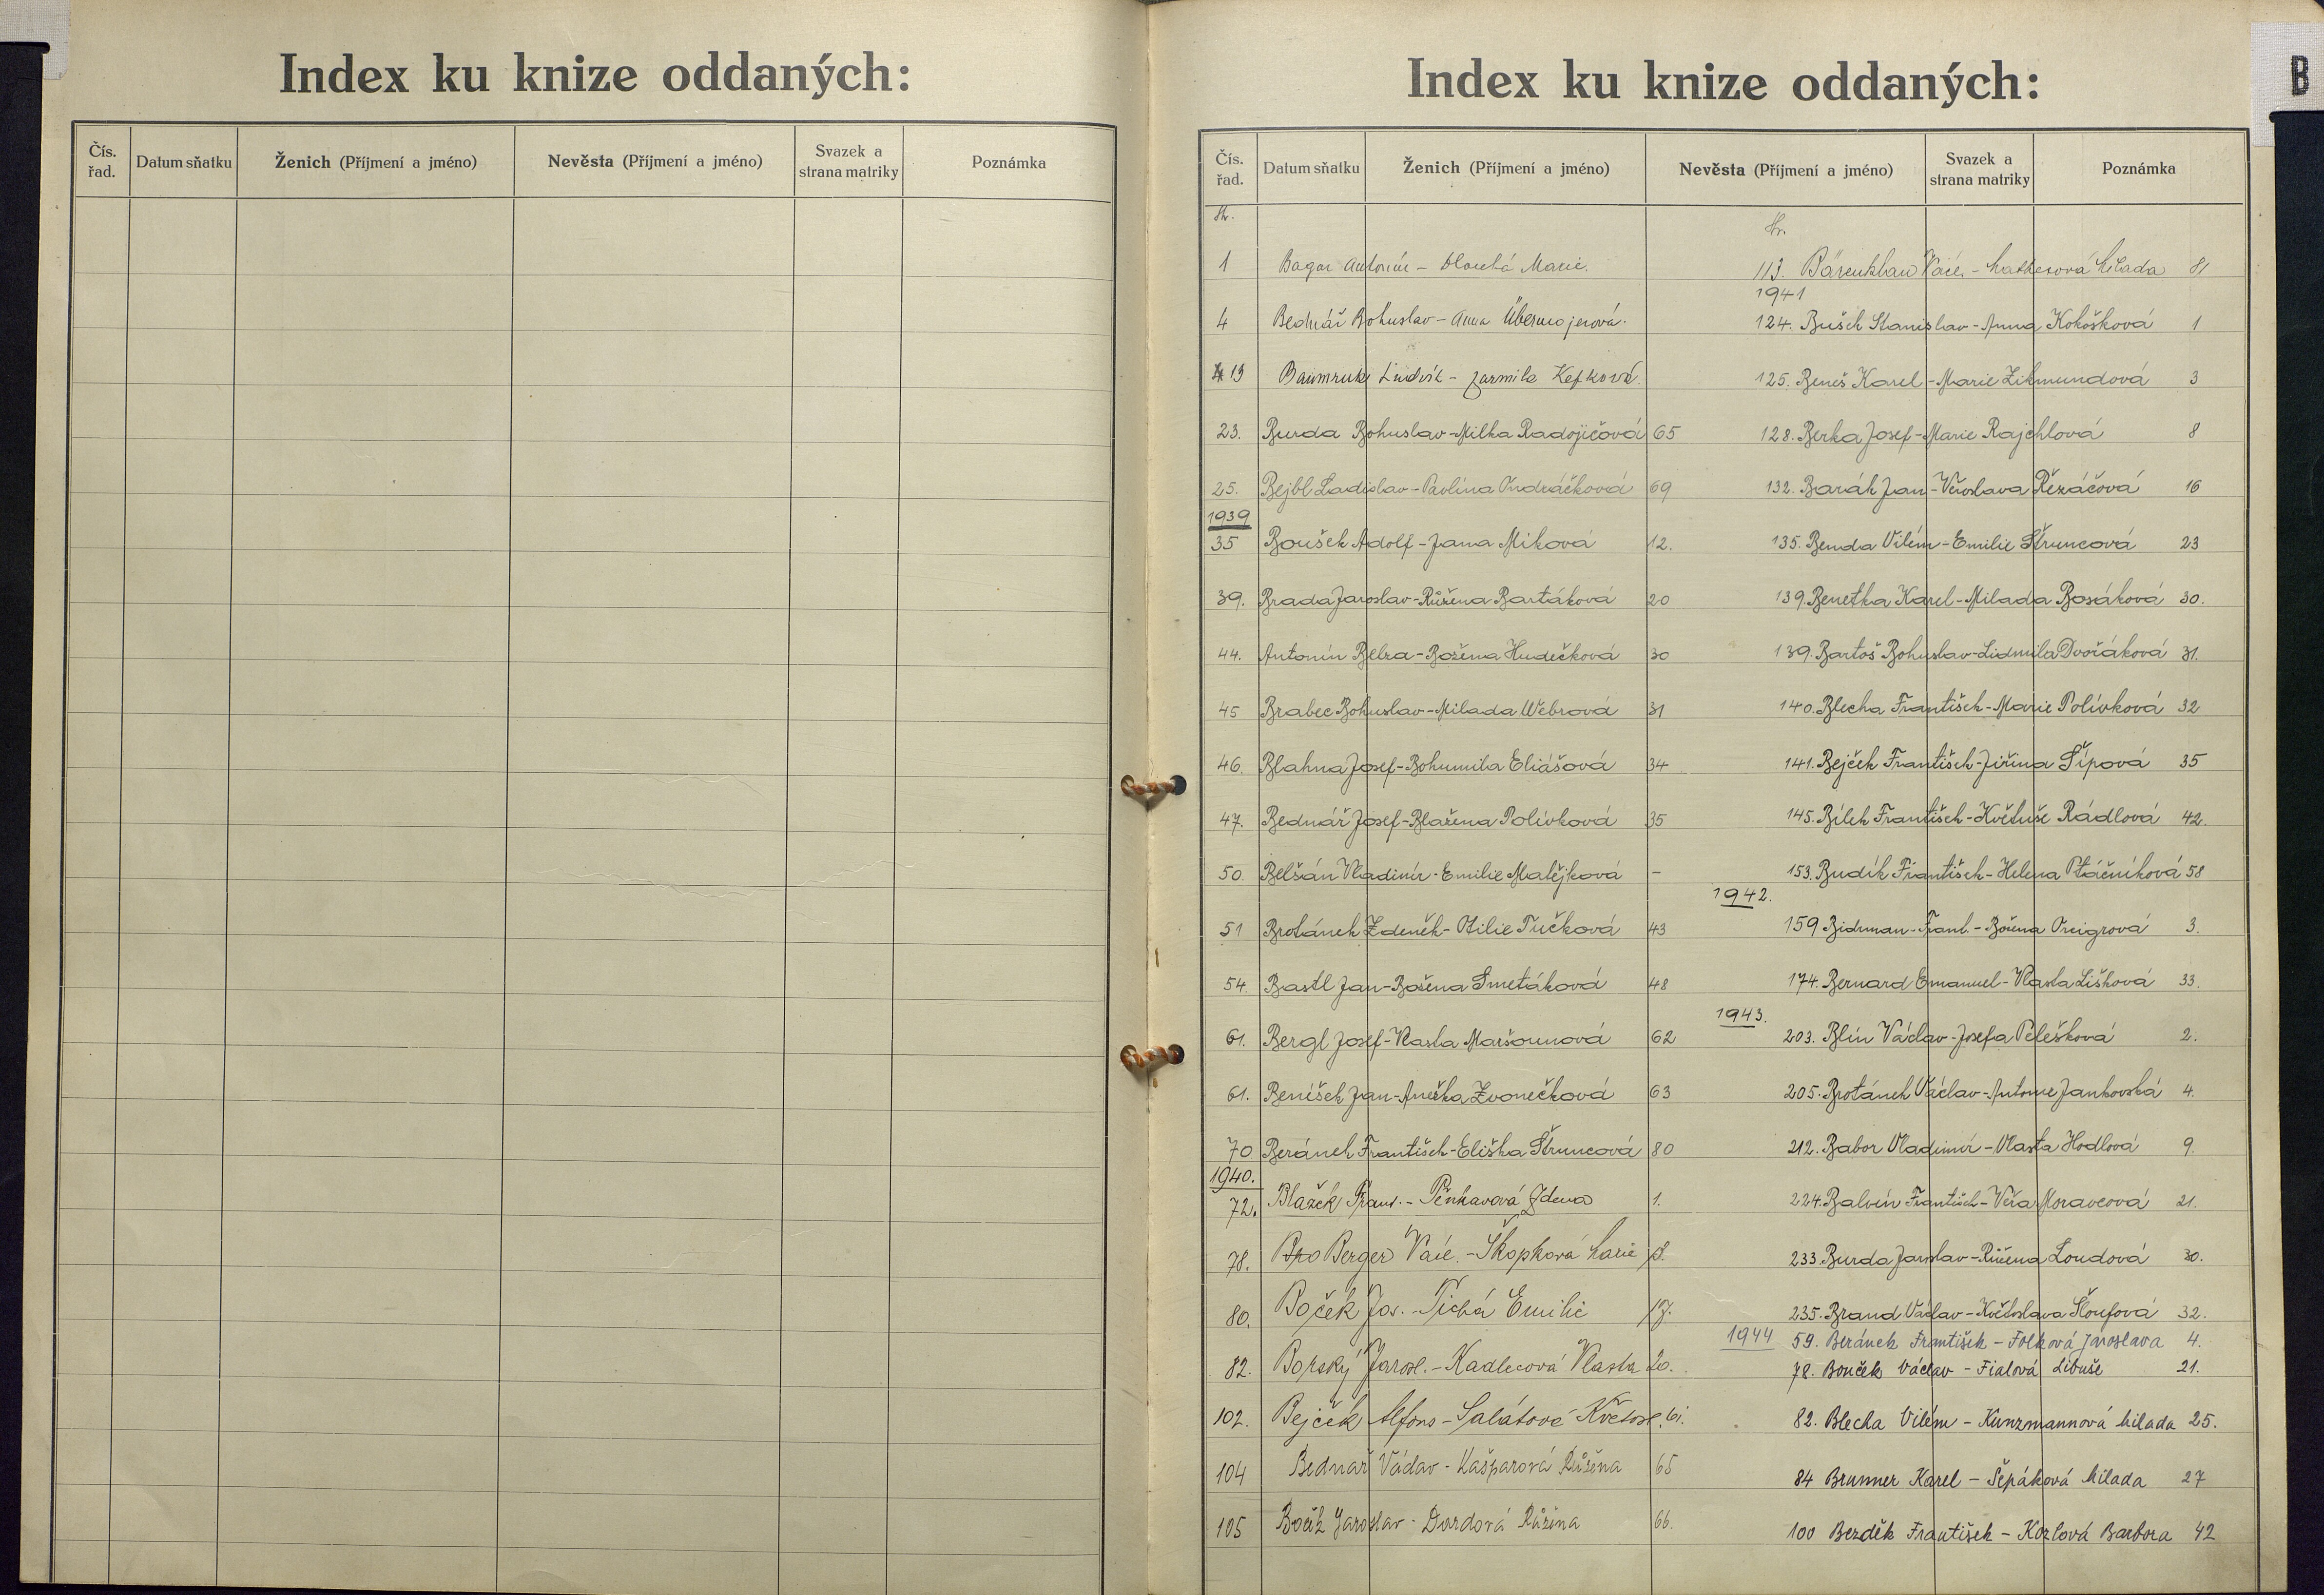 Index ku knize oddaných:
Čís. řad. Datum sňatku Ženich (Příjmení a jméno) Nevěsta (Příjmení a jméno) Svazek a strana matriky Poznámka
Index ku knize oddaných:
B
Čís. řad. Datum sňatku Ženich (Příjmení a jméno) Nevěsta (Příjmení a jméno) Svazek a strana matriky Poznámka
Str.
1 Bagar Antonín - Dlouhá Marie.
4 Bednář Bohuslav - Anna Übermojerová.
19 Baumruk Ludvík - Jarmila Kefková.
23. Burda Bohuslav - Milka Radojičová 65
25. Bejbl Ladislav - Pavlína Ondráčková 69
1939
35 Boušek Adolf - Jana Miková 12.
39. Brada Jaroslav - Růžena Bartáková 20
44. Antonín Belza - Božena Hudečková 30
45 Brabec Bohuslav - Milada Webrová 31
46. Blahna Josef - Bohumila Eliášová 34
47. Bednář Josef - Blažena Polívková 35
50. Belšán Vladimír - Emilie Matějková -
51 Brotánek Zdeněk - Otilie Tučková 43
54. Bastl Jan - Božena Smetáková 48
61. Bergl Josef - Vlasta Maršounová 62
61. Beníšek Jan - Anežka Zvonečková 63
70 Beránek František - Eliška Štruncová 80
1940.
72. Blažek Frant. - Pěnkavová Zdena 1.
78. Bro Berger Vác. - Škopková Marie 13.
80. Boček Jos. - Tichá Emilie 17.
82. Borský Jarosl. - Kadlecová Vlasta 20.
102. Bejček Alfons - Salátová Květosl. 61.
104 Bednař Václav - Kašparová Růžena 65
105 Bočík Jaroslav - Dardová Růžena 66.
Str.
113. Bärenklau Vác. - Matherová Milada 81
1941
124. Bušek Stanislav - Anna Kokošková 1
125. Beneš Karel - Marie Zikmundová 3
128. Berka Josef - Marie Rajchlová 8
132. Barák Jan - Věroslava Řezáčová 16
135. Benda Vilém - Emilie Štruncová 23
139. Benetka Karel - Milada Bosáková 30.
139. Bartoš Bohuslav - Lidmila Dvořáková 31.
140. Blecha František - Marie Polívková 32
141. Bejček František - Jiřina Šípová 35
145. Bílek František - Květuše Rádlová 42.
153. Budík František - Helena Ptáčníková 58
1942.
159 Bidrman - Frant. - Božena 3.
174. Bernard Emanuel - Vlasta Lišková 33.
1943.
203. Blín Václav - Josefa Pelešková 2.
205. Brotánek Václav - Antonie Jankovská 4.
212. Babor Vladimír - Vlasta Hodlová 9.
224. Balvín František - Věra Moravcová 21.
233. Burda Jaroslav - Růžena Loudová 30.
235. Brand Václav - Květoslava Šloufová 32.
1944 59. Beránek František - Folková Jaroslava 4.
78. Bouček Václav - Fialová Libuše 21.
82. Blecha Vilém - Kunzmannová Milada 25.
84 Brunner Karel - Šepáková Milada 27
100 Bezděk František - Kozlová Barbora 42